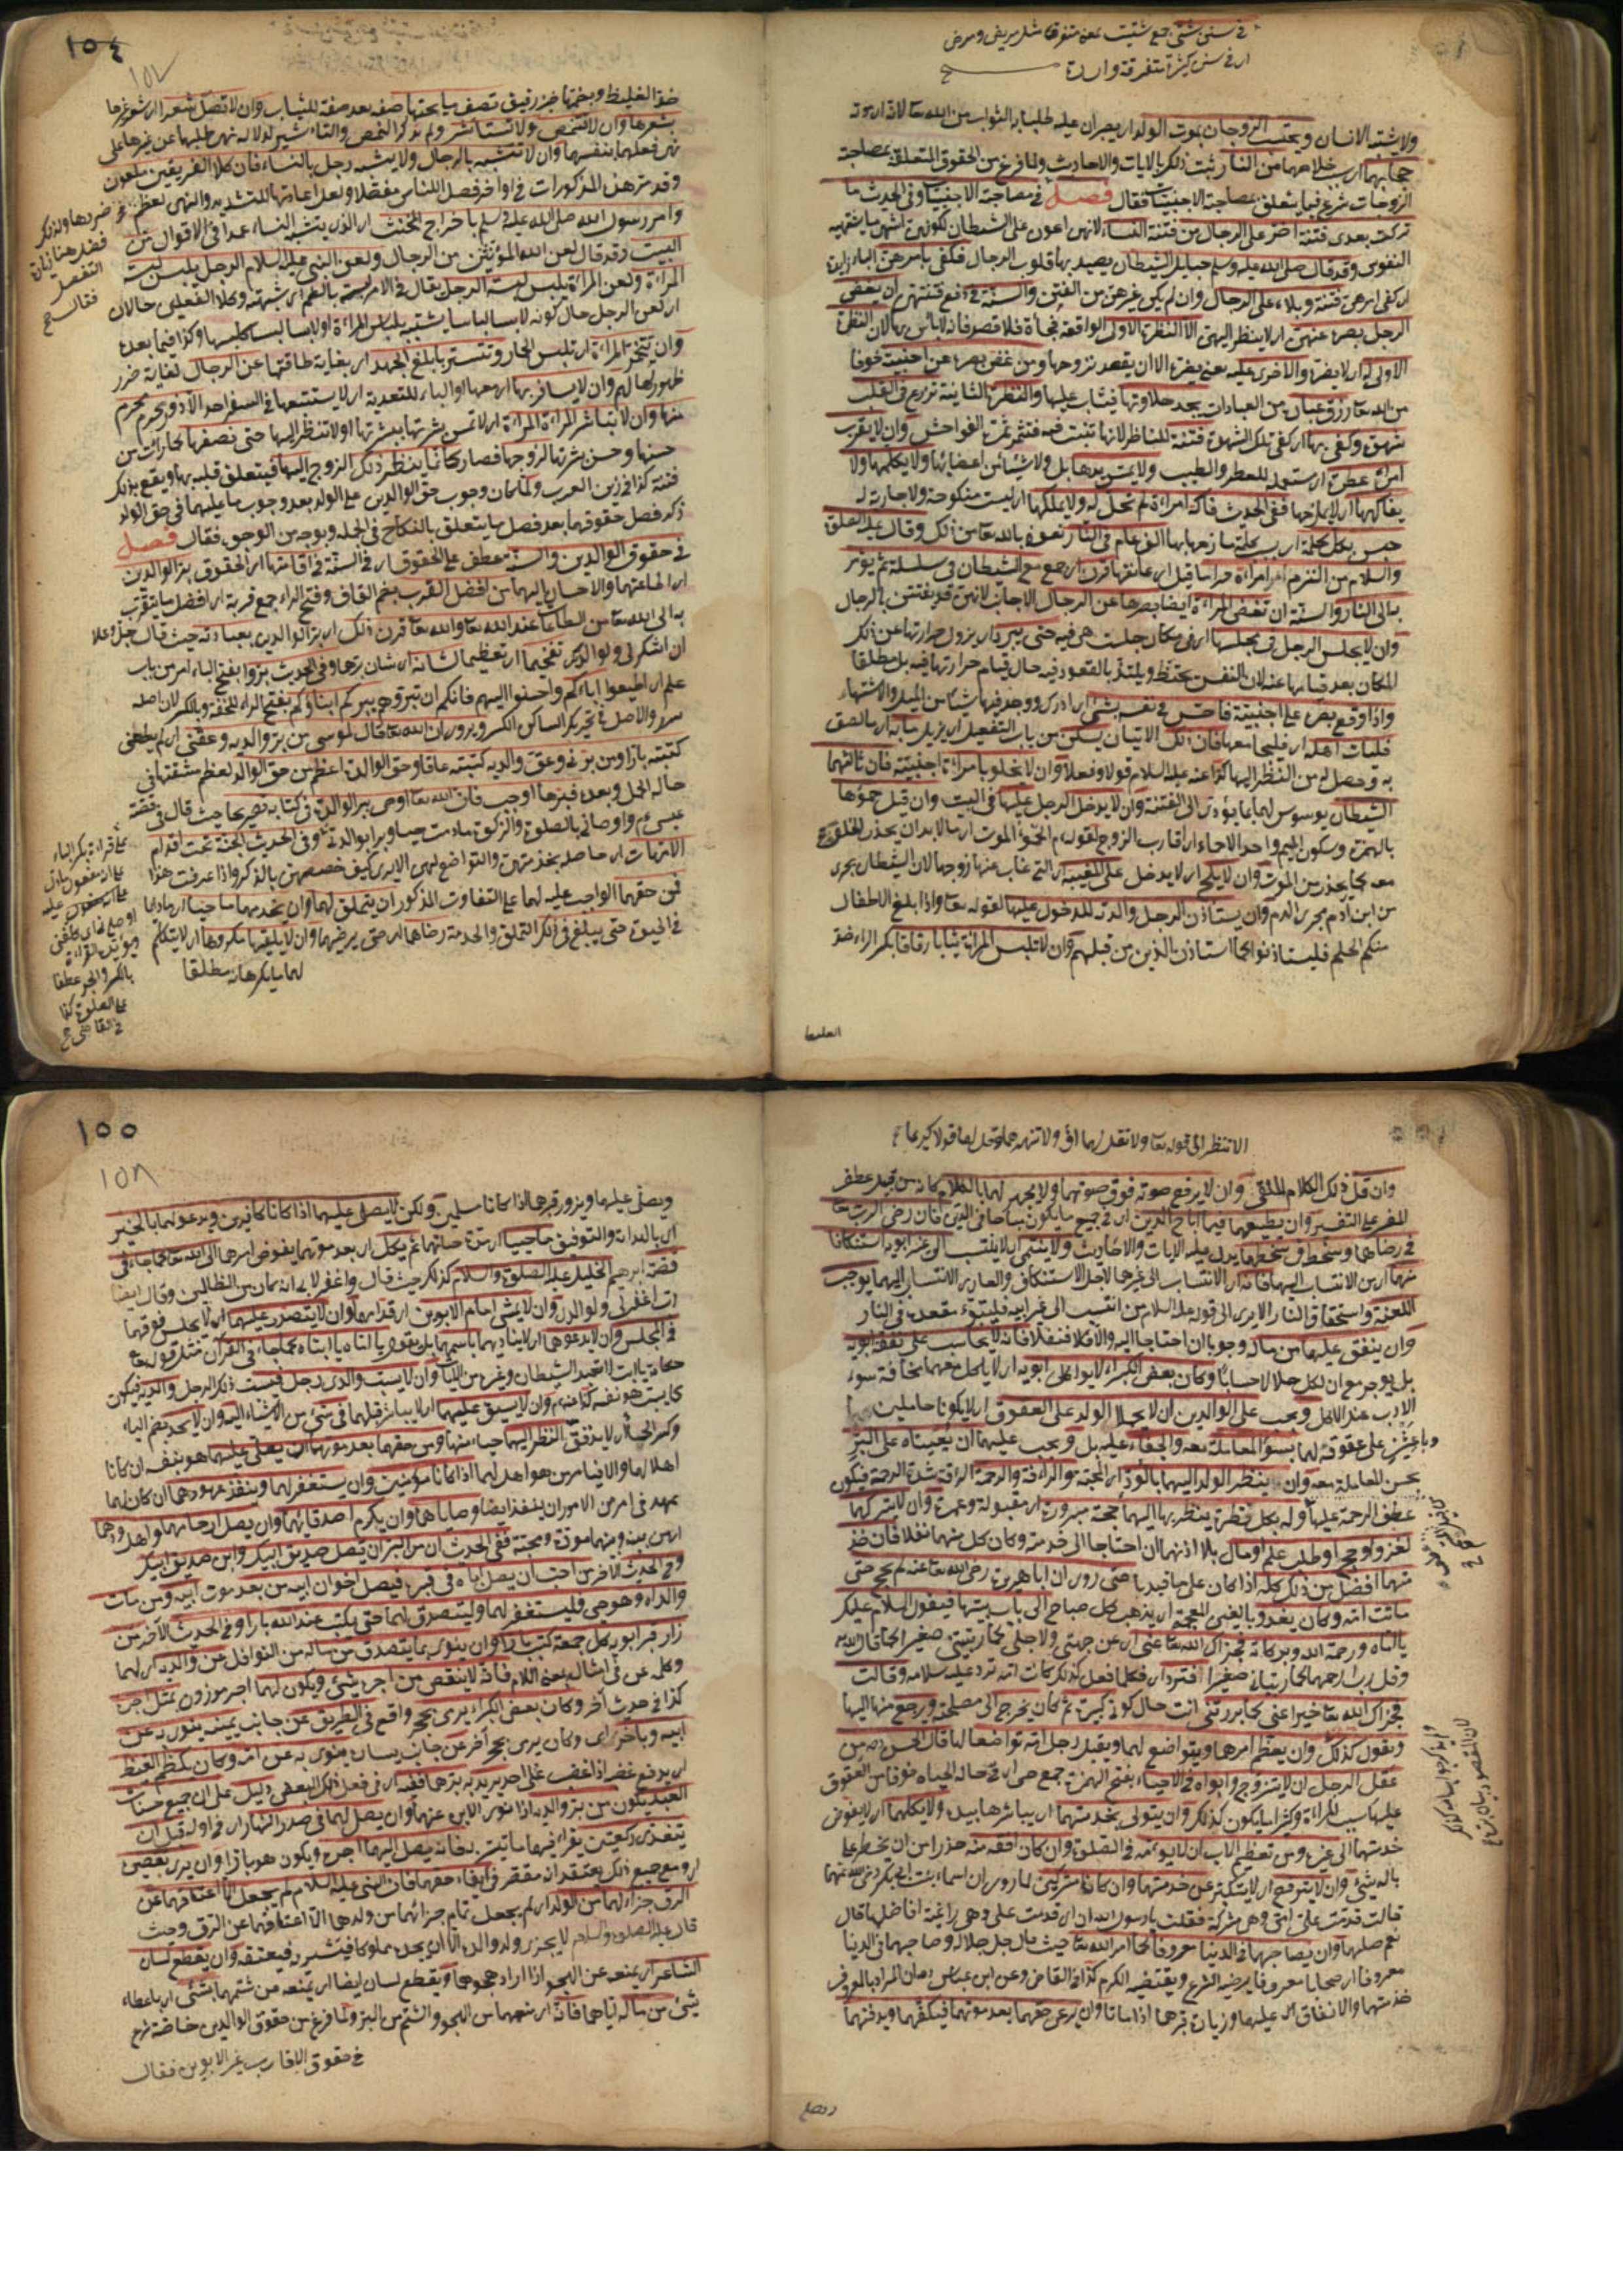 في سنن شتى جمع شتيت بمعنى متفرقا مثل مريض ومرضى
اي في سنن كثيرة متفرقة واردة
ولا يشتبه الانسان ويحتسب الزوجان بموت الولد اي يصبران عليه طلبا به الثواب من الله تعالى لانه
حجابهما اي خلاصهما من النار ثبت ذلك بالايات والاحاديث ولما فرغ من الحقوق المتعلقة بمصاحبة
الزوجات شرع فيما يتعلق بمصاحبة الاجنبيات فقال فصل في مصاحبة الاجنبيات وفي الحديث ما
تركت بعدى فتنة اضر على الرجال من فتنة النساء لانهن اعون على الشيطان لكونهن اشهى ما يشتهيه
النفوس وقد قال صلى الله عليه وسلم حبايل الشيطان يصيد بها قلوب الرجال فكفى بامرهن الباء زايدة
اي كفى امرهن فتنة وبلاء على الرجال وان لم يكن غيرهن من الفتن والسنة في دفع فتنتهن ان يغض
الرجل بصره عنهن اي لا ينظر اليهن الا النظرة الاولى الواقعة فجأة فلا قصد فانه لا باس بها لان النظرة
الاولى له اي لا يضره والاخرى عليه يعني يضره الا ان يقصد تزوجها ومن غض بصره عن اجنبية خوفا
من الله تعالى رزق عبادة من العبادات يجد حلاوتها فيثاب عليها والنظرة الثانية تزرع في القلب
شهوة وكفى بها اي كفى تلك الشهوة فتنة للناظر لانها تنبت فيه فتثمر ثمرة الفواحش وان لا يقرب
امرأة عطرة اي مستعملة للعطر والطيب ولا يمس يدها بل ولا شيئا من اعضائها ولا يكلمها ولا
يفاكهها اي لا يمازحها ففي الحديث من فاكه امراة لم تحل له ولا يملكها اي ليست منكوحة ولا جارية له
حبس بكل كلمة اي بسبب كلمة مازحها بها الف عام في النار نعوذ بالله تعالى من ذلك وقال عليه الصلوة
والسلام من التزم امراة حراما قيل اي عانقها قرن اي جمع مع الشيطان في سلسلة ثم يؤمر
به الى النار والسنة ان تغض المراة ايضا بصرها عن الرجال الاجانب لانهن قد يفتتن بالرجال
وان لا يجلس الرجل في مجلسها اي في مكان جلست هي فيه حتى يبرد اي يزول حرارتها عن ذلك
المكان بعد قيامها عنه لان النفس يحتظ ويلتذ بالقعود فيه حال قيام حرارتها فيه بل مطلقا
واذا وقع بصره على اجنبية فاحس في نفسه بشيء اي ادرك ووجد فيها شيئا من الميل والاشتهاء
فليات اهله اي فليجامعها فان ذلك الاتيان يسكن من باب التفعيل اي يزيل ما به اي ما لصق
به وحصل له من النظر اليها كذا عنه عليه السلام قولا وفعلا وان لا يخلو بامراة اجنبية فان ثالثهما
الشيطان يوسوس لهما بما يؤدى الى الفتنة وان لا يدخل الرجل عليها في البيت وان قيل حموها
بالهمزة وسكون الميم واحد الاحماء اي اقارب الزوج لقوله م الحمؤ الموت اي مما لا بد ان يحذر
معه كما يحذر من الموت وان لا يلج اي لا يدخل على المغيبة اي التي غاب عنها زوجها لان الشيطان يجرى
من ابن ادم مجرى الدم وان يستاذن الرجل والدته للدخول عليها لقوله تعالى واذا بلغ الاطفال
منكم الحلم فليستاذنوا كما استاذن الذين من قبلهم وان لا تلبس المراة ثيابا رقاقا بكسر الراء ضد
الغليظ
١٥٤
١٥٧
ضد الغليظ وبخمتها خز رقيق تصف ما تحتها صفة بعد صفة للثياب وان لا تصل شعرا اي شعر غيرها
بشعرها وان لا تتنمص ولا تستاشر ولم يذكر النمص
نهى فعلها بنفسها وان لا تتشبه بالرجال ولا يشبه رجل بالنساء فان كلا الفريقين ملعون
وقد مر هذه المذكورات في اواخر فصل اللباس مفصلا ولعل اعادتها للتشديد والنهى لعظم
وامر رسول الله صلى الله عليه وسلم باخراج المخنث اي الذى يتشبه النساء عمدا في الاقوال من
البيت وقد قال لعن الله المؤنثين من الرجال ولعن النبي عليه السلام الرجل يلبس لبسة
المراة ولعن المراة يلبس لبسة الرجل
اي لعن الرجل حال كونه لابسا لباسا يشبه بلباس المراة او لابسا لباسا كلبسها وكذا فيما بعده
وان تتخمر المراة اي تلبس الخمار وتتستر بابلغ الجهد اي بغاية طاقتها عن الرجال لغاية ضرر
ظهورها لهم وان لا يسافر بها
منها وان لا تباشر المراة المراة اي لا تمس بشرتها ببشرتها او لا تنظر اليها حتى تصفها
حسنها وحسن بشرتها لزوجها فصار كانما ينظر ذلك الزوج اليها فيتعلق قلبه بها ويقع بذلك
فتنة كذا في زين العرب ولما كان وجوب حق الوالدين على الولد بعد وجوب ما عليهما في حق الولد
ذكر فصل حقوقهما بعد فصل ما يتعلق بالنكاح في الجملة وبوجه من الوجوه فقال فصل
في حقوق الوالدين والسنة عطف على الحقوق اي في السنة في اقامتها اي الحقوق بر الوالدين
اي اطاعتهما والاحسان اليهما من افضل القرب بضم القاف وفتح الراء جمع قربة اي افضل ما يتقرب
به الى الله تعالى من الطاعات عند الله تعالى والله تعالى قرن ذلك اي بر الوالدين بعبادته حيث قال جل وعلا
ان اشكر لى ولوالديك تفخيما اي تعظيما لشانه اي شان برهما وفي الحديث بروا بفتح الباء امر من باب
علم اي اطيعوا اباءكم واحسنوا اليهم فانكم ان تبروهم يبركم ابناؤكم بفتح الراء للخفة وبالكسر لان اصله
والاصل في تحريك الساكن الكسر ويروى ان الله تعالى قال لموسى من بر والديه وعقنى
كتبته بارا ومن برنى وعق والديه كتبته عاقا وحق الوالدة اعظم من حق الوالد لعظم مشقتها في
حالة الحمل وبعده فبرها اوجب فان الله تعالى اوصى ببر الوالدة في كتابه صريحا حيث قال في قصة
عيسى م واوصانى بالصلوة والزكوة ما دمت حيا وبرا بوالدتى وفي الحديث الجنة تحت اقدام
الامهات اي حاصلة بخدمتهن والتواضع لهن الا يرى كيف خصصهن بالذكر واذا عرفت هذا
فمن حقهما الواجب عليه لهما على التفاوت المذكور ان يتملق لهما وان يخدمهما ما حييا اي ما داما
في الحيوة حتى يبلغ في ذلك التملق والخدمة رضاهما اي حتى يرضيهما وان لا يلقيهما مكروها اي لا يتكلم
لهما ما يكرهانه مطلقا
ضررها ولذلك
فصل هنا زيادة
التفصيل
فقال
على قراءة بكسر الباء
بالكسر والجر عطفا
على الصلوة كذا
في القاضى
الا تنظر الى قوله تعالى ولا تقل لهما اف ولا تنهرهما وقل لهما قولا كريما
وان قل ذلك الكلام الملقى وان لا يرفع صوته فوق صوتهما ولا يجهر لهما بالكلام كانه من قبيل عطف
المفسر على التفسير وان يطيعهما فيما اباح الدين اي في جميع ما يكون مباحا في الدين فان رضى الرب تعالى
في رضاهما وسخطه في سخطهما يدل عليه الايات والاحاديث ولا ينتمى اي لا ينتسب الى غير ابويه استنكافا
منهما اي من الانتساب اليهما فانه اي الانتساب الى غيرهما لاجل الاستنكاف والعار من الانتساب اليهما يوجب
اللعنة واستحقاق النار الا يرى الى قوله عليه السلام من انتسب الى غير ابيه فليتبوء مقعده في النار
وان ينفق عليهما من ماله وجوبا ان احتاجا اليه والا فلا فضلا فانه لا يحاسب على نفقة ابويه
بل يوجر مع ان لكل حلال حسابا وكان بعض الكبراء لا يواكل ابويه اي لا ياكل معهما مخافة سوء
الادب عند الاكل ويجب على الوالدين ان لا يحملا الولد على العقوق اي لا يكونا حاملين
وباعثين على عقوقه لهما بسوء المعاملة معه والجفاء عليه بل ويجب عليهما ان يعيناه على البر
بحسن المعاملة معه وان ينظر الولد اليهما بالود اي المحبة والرأفة والرحمة الرأفة شدة الرحمة فيكون
عطف الرحمة عليها وله بكل نظرة ينظر بها اليهما حجة مبرورة اي مقبولة وعمرة وان لا يتركهما
لغزو او حج او طلب علم او مال بلا اذنهما ان احتاجا الى خدمته وكان كل منهما نفلا فان
منهما افضل من ذلك كله اذا كان على ما قيد به حتى روى ان ابا هريرة رضى الله تعالى عنه لم يحج حتى
ماتت امه وكان يغدو بالغين المعجمة اي يذهب كل صباح الى باب بيتها فيقول السلام عليك
يا اماه ورحمة الله وبركاته فجزاك الله تعالى عنى اي من جهتى ولاجلى كما ربيتنى صغيرا كما قال الله
وقل رب ارحمهما كما ربيانى صغيرا فترد اي فكلما فعل كذلك كانت امه ترد عليه سلامه وقالت
فجزاك الله تعالى خيرا عنى كما بررتنى انت حال كونى كبيرة ثم كان يخرج الى مصلحته ورجع منها اليها
ويقول كذلك وان يعظم امرهما ويتواضع لهما ويقبل رجل امه تواضعا لها قال الحسن رحمه من
عقل الرجل ان لا يتزوج وابواه في الاحياء بفتح الهمزة جمع حى اي في حالة الحياة خوفا من العقوق
عليهما بسبب المراة وكثيرا ما يكون كذلك وان يتولى بخدمتهما اي يباشرها بيده ولا يكلها اي لا يفوض
خدمتهما الى غيره ومن تعظيم الاب ان لا يؤمه في الصلوة وان كان افقه منه حذرا من ان يخطر
باله شئ وان لا يترفع اي لا يتكبر عن خدمتهما وان كانا مشركين لما روى ان اسماء بنت ابي بكر رضى الله عنهما
قالت قدمت على امى وهى مشركة فقلت يا رسول الله ان امى قدمت على وهى راغبة افاصلها قال
نعم صلها وان يصاحبهما في الدنيا معروفا كما امر الله تعالى حيث قال جل جلاله وصاحبهما في الدنيا
معروفا اي صحابا معروفا يرضيه الشرع ويقتضيه الكرم كذا في القاضى وعن ابن عباس رضهما ان المراد بالمعروف
خدمتهما والانفاق عليهما وزيارة قبرهما اذا ماتا وان يرعى حقهما بعد موتهما فيكفنهما ويدفنهما
ويصلى
١٥٥
١٥٨
ويصلى عليهما ويزور قبرهما اذا كانا مسلمين ولكن لا يصلى عليهما اذا كانا كافرين ويدعو لهما بالخير
اي بالهداية والتوفيق ما حييا اي مدة حياتهما ثم يكل اي بعد موتهما يفوض امرهما الى الله تعالى كما جاء في
قصة ابرهيم الخليل عليه الصلوة والسلام كذلك حيث قال واغفر لابى انه كان من الضالين وقال ايضا
رب اغفر لى ولوالدى وان لا يمشى امام الابوين اي قدامهما وان لا يتصدر عليهما اي لا يجلس فوقهما
في المجلس وان لا يدعوهما اي لا يناديهما باسمهما بل يقول يا اماه يا ابتاه كما جاء في القرآن مثل قوله تعالى
حكاية يا ابت لا تعبد الشيطان وغيره من الآيات وان لا يسب والدى رجل فيسب ذلك الرجل والديه فيكون
كما يسب هو نفسه وان لا يسبق عليهما اي لا يباشر قبلهما في شئ من الاشياء وان لا يحد بضم الياء
وكسر الحاء اي لا يدقق النظر اليهما حياء منهما ومن حقهما بعد موتهما ان يصلى عليهما هو بنفسه ان كانا
اهلا لها والا فيامر من هو اهل لهما اذا كانا مؤمنين وان يستغفر لهما وينفذ عهودهما ان كان لهما
عهد في امر من الامور ان ينفذ ايضا وصاياهما وان يكرم اصدقائهما وان يصل ارحامهما واهل ودهما
اي من بينه وبينهما مودة ومحبة ففي الحديث ان من البر ان تصل صديق ابيك وابن صديق ابيك
وفي الحديث الآخر من احب ان يصل اباه في قبره فيصل اخوان ابيه من بعد موت ابيه ومن مات
والداه وهو حى فليستغفر لهما وليتصدق لهما حتى يكتب عند الله بارا وفي الحديث الآخر من
زار قبر ابويه كل جمعة كتب بارا وان ينوى بما يتصدق من ماله من النوافل عن والديه اي لهما
وكلمة عن في امثاله بمعنى اللام فانه لا ينقص من اجره شئ ويكون لهما اجر موزون بمثل اجره
كذا في حديث آخر وكان بعض الكبراء يرى بحجر واقع في الطريق عن جانب يمينه ينوى به عن
ابيه وبآخر اى وكان يرى بحجر آخر عن جانب يساره ينوى به عن امه وكان يكظم الغيظ
اي يدفع غضبه اذا غضب على احد يريد به برهما ففيه اي في فعل ذلك البعض دليل على ان جميع حسنات
العبد يكون من بر والديه اذا نوى الابن عنهما وان يصل لهما في صدر النهار اي في اوله قبل ان
يتغدى ركعتين يقراء فيهما ما تيسر فانه يصل اليهما اجره ويكون هو بارا وان يرى بعضى
اي ومع جميع ذلك يعتقد انه مقصر في ايفاء حقهما فان النبي عليه السلام لم يجعل الا اعتاقهما عن
الرق جزاء لهما من الولد اي لم يجعل تمام جزائهما من ولدهما الا اعتاقهما عن الرق وحيث
قال عليه الصلوة والسلام لا يجزى ولد والده الا ان يجده مملوكا فيشتريه فيعتقه وان يقطع لسان
الشاعر اي يمنعه عن الهجو اذا اراد هجوهما ويقطع لسانه ايضا اي يمنعه من شتمهما بشئ اي باعطاء
شئ من ماله اياهما فانه اي منعهما من الهجو والشتم من البر ولما فرغ من حقوق الوالدين خاصة شرع
في حقوق الاقارب غير الابوين فقال